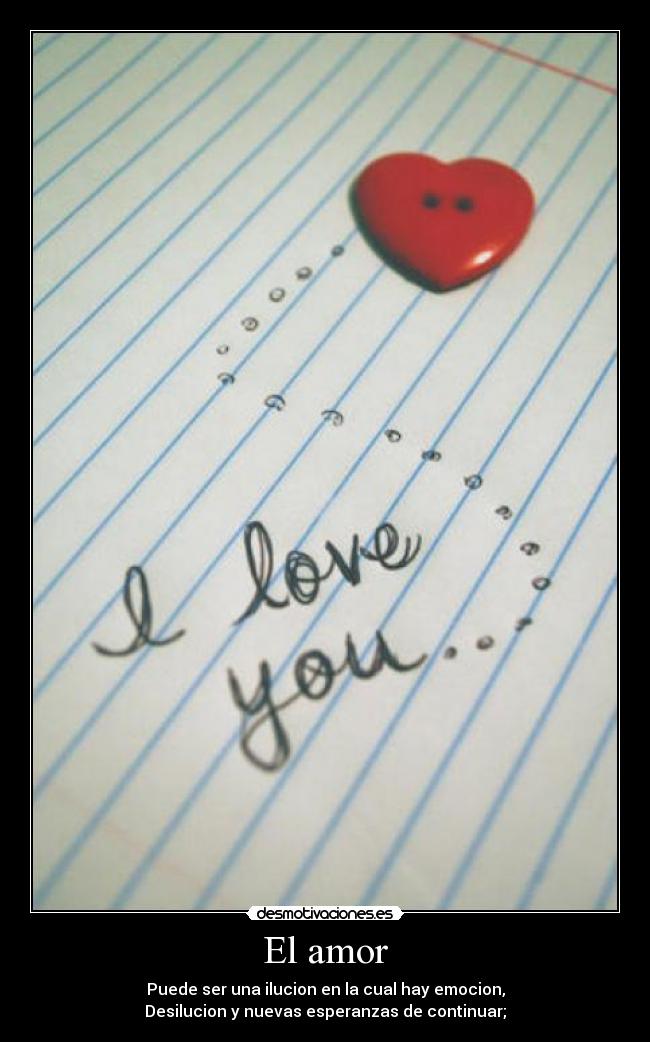 I love
you...
desmotivaciones.es
El amor
Puede ser una ilucion en la cual hay emocion,
Desilucion y nuevas esperanzas de continuar;